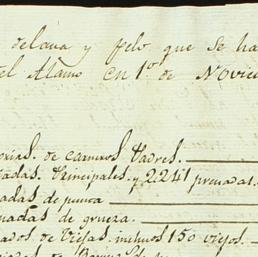 delana y pelo que se ha
el Alamo en 1º de Novie
orias. de carneros Padres.
adas Principales, y 2241 preñadas
adas de punta
nadas de grueza.
ados de Viejas. inclusos 150 viejos.